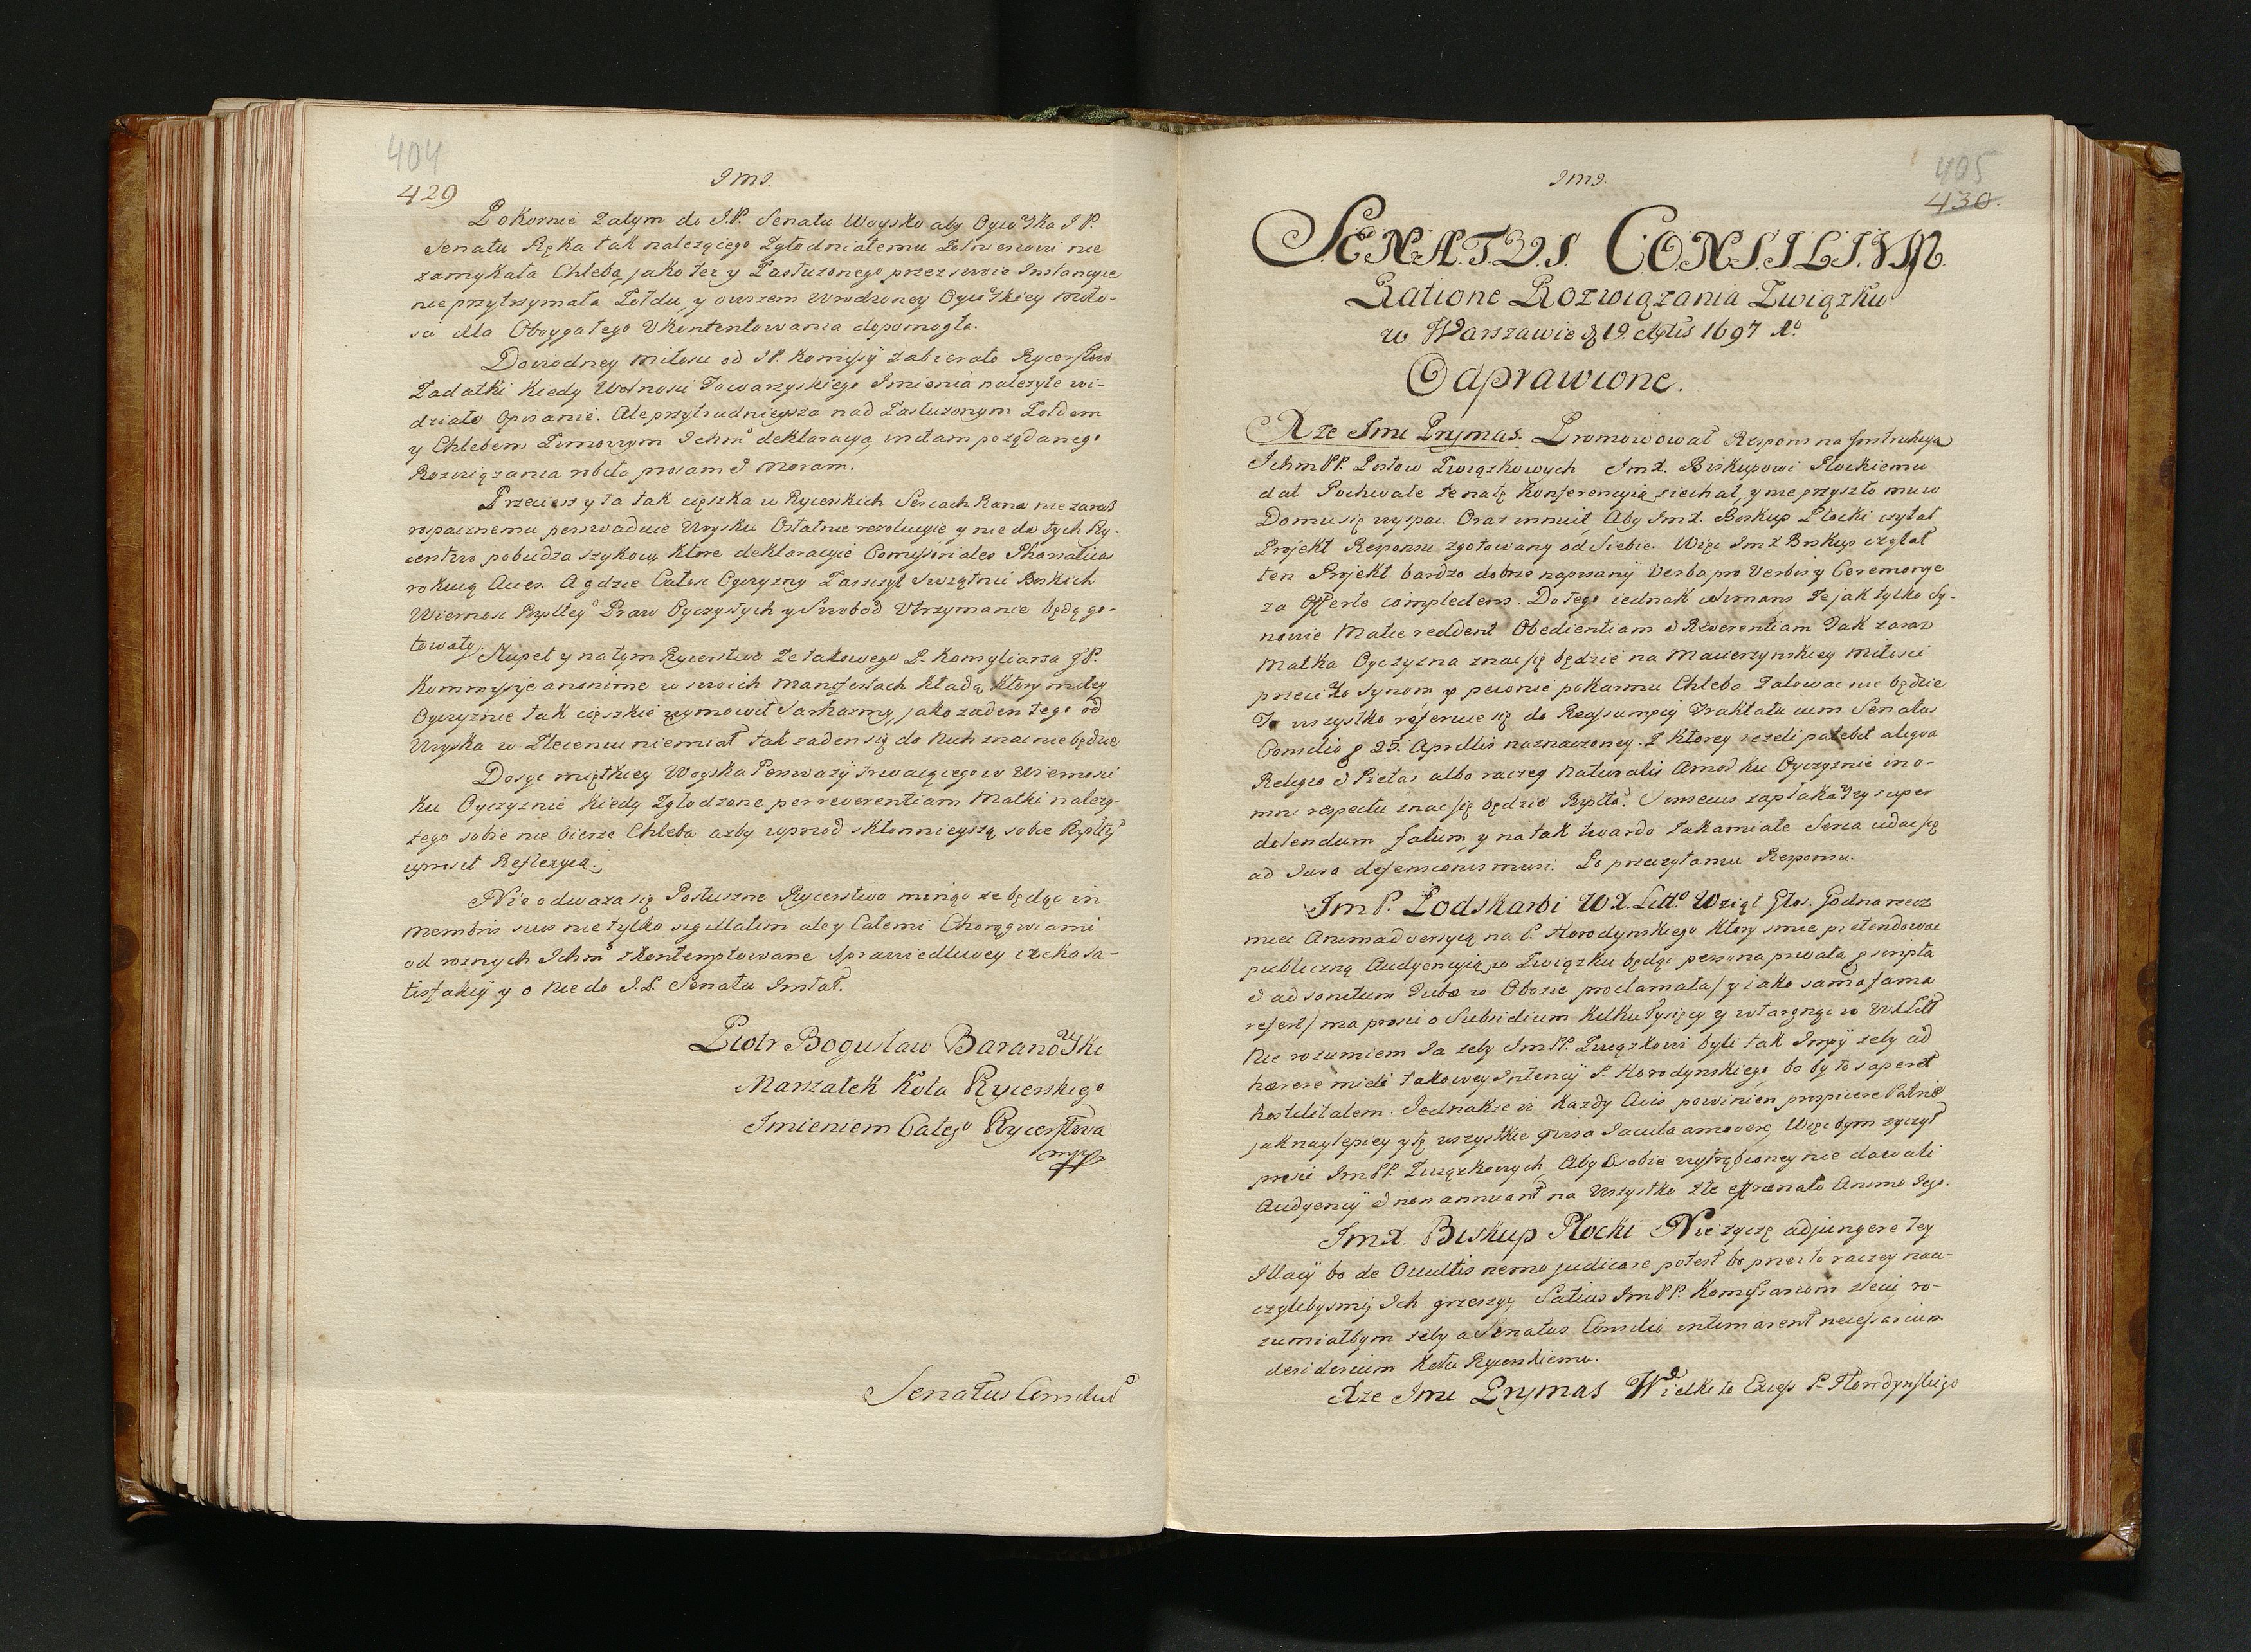 404
429
Jmj.
Pokornie zatym do J.P. Senatu Woysko aby Oycowska J P.
Senatu Ręka tak nalezącego Zgłodniałemu Zołnierzowi nie
zamykała Chleba, jako tez y Zasłuzonego przez swoie Instancyie
nie przytrzymała Zołdu, y owszem wrodzoney Oycowskiey miło-
sci dla Obojgatego Vkontentowania dopomogła.
Dowodney miłosci od J P. Komisyi zabierało Rycerstwo
Zadatki kiedy Wolnosci Towarzyskiego Imienia nalezyte wi-
działo Opisanie. Ale przytrudnieysza nad Zasłuzonym Zołdem
y Chlebem Zimowym Ichm deklaracyą initam poządanego
Rozwiązania robiła proram & moram.
Przeciesz y ta tak cięszka w Rycerskich Sercach Rana nie zaraz
rospacznemu perswaduie Woysku Ostatnie rezolucyie y nie do tych Ry-
cerstwo pobudza szykow, ktore deklaracyie Comissoriales Phanaticas
rokuią Acies. A gdzie Całosc Oyczyzny Zaszczyt Swiątnic Boskich
Wiernosc Rzpltey Praw Oyczystych y Swobod Vtrzymanie będą go-
towały. Stupet y na tym Rycerstwo ze takowego P. Konsyliarza J P.
Kommissyie anonime w swoich manifestach kładą, ktory miłey
Oyczyznie tak cięszkie wymowił Sarkazmy, jako zaden tego od
Woyska w Zleceniu niemiał tak zaden się do nich znac nie będzie
Dosyc miętkiey Woyska Perswazyi trwaiącego w Wiernosci
ku Oyczyznie kiedy Zgłodzone per reverentiam Matki nalezy-
tego sobie nie bierze Chleba azby wprzod skłonnieyszą sobie Rzpltey
uprosił Reflexyią.
Nie odwaza się Posłuszne Rycerstwo minąc ze będąc in
membris suis nie tylko sigillatim ale y Całemi Chorągwiami
od roznych Ichm zkontemptowane sprawiedliwey czeka sa-
tisfakcyi y o nie do J.P. Senatu Instat.
Piotr Bogusław Baranowski
Marszałek Koła Rycerskiego
Imieniem Całego Rycerstwa
mpp
Senatus Consilius
405
430.
Jmj.
SENATVS CONSILIVM
Ratione Rozwiązania Związku
w Warszawie d 19. Aplis 1697 Ao
Odprawione.
Xze Jmc Prymas. Promowował Respons na Instrukcyą
Ichm PP. Posłow Związkowych Jm X. Biskupowi Płockiemu
dał Pochwałe ze natę konferencyią ziechał, y nie przyszło mu w
Domu się wyspac. Oraz wnosił, Aby Jm X. Biskup Płocki czytał
Projekt Responsu zgotowany od Siebie. Więc Jm X Biskup czytał
ten Projekt bardzo dobrze napisany Verba pro Verbis y Ceremonye
za Offerte complectens. Do tego iednak ze jak tylko Sy-
nowie Matce reddent Obedientiam & Reverentiam Jak zaraz
Matka Oyczyzna znac się będzie na Macierzynskiey miłosci
przeciwko Synom y pewnie pokarmu Chleba załowac nie będzie
To wszystko referuie się do Reassumpcyi Traktatu cum Senatus
Consilio d 25. Aprillis naznaczoney. Z ktorey iezeli patebit aliqua
Religio & Pietas albo raczey naturalis Amor ku Oyczyznie in o-
mni respectu znac się będzie Rzplta. zapłakawszy super
dolendum fatum, y na tak twardo zakamiałe Serca udac się
ad Jura defensionis musi. Po przeczytaniu Responsu.
Jm P. Podskarbi W.X. Litt. Wziął Głos. Godna rzecz
miec Animadversyią na P. Horodynskiego ktory smie pretendowac
publiczną Audyencyią w Związku będąc persona privata proscripta
& ad sonitum Tubæ w Obozie proclamata / y iako sama fama
refert / ma prosic o Subsidium kilku Tysięcy y wtargnąc w W X Litt
Nie rozumiem Ja zeby Jm PP. Związkowi byli tak Impij zeby ad
hærere mieli takowey Intencyi P. Horodynskiego, bo by to saperet
hostilitatem. Jednakze iz kazdy Civis powinien prospicere Patriæ
jak naylepiey y tę wszystkie Jacula amovere, Więc bym zyczył
prosic Jm PP. Związkowych, Aby Osobie wytrąbioney nie dawali
Audyencyi & non annuant na wszystko złe effrænato Animo Jego.
Jm X. Biskup Płocki Nie zyczę adjungere tey
Illacyi bo de Occultis nemo judicare potest bo przez to raczey nau-
czylibysmy Ich grzeszyc. Satius Jm PP. Komissarzom zlecic ro-
zumiałbym zeby a Senatus Consilio intimarent necessarium
desiderium Kołu Rycerskiemu.
Xze Jmc Prymas Wielki to Excess P. Horodynskiego